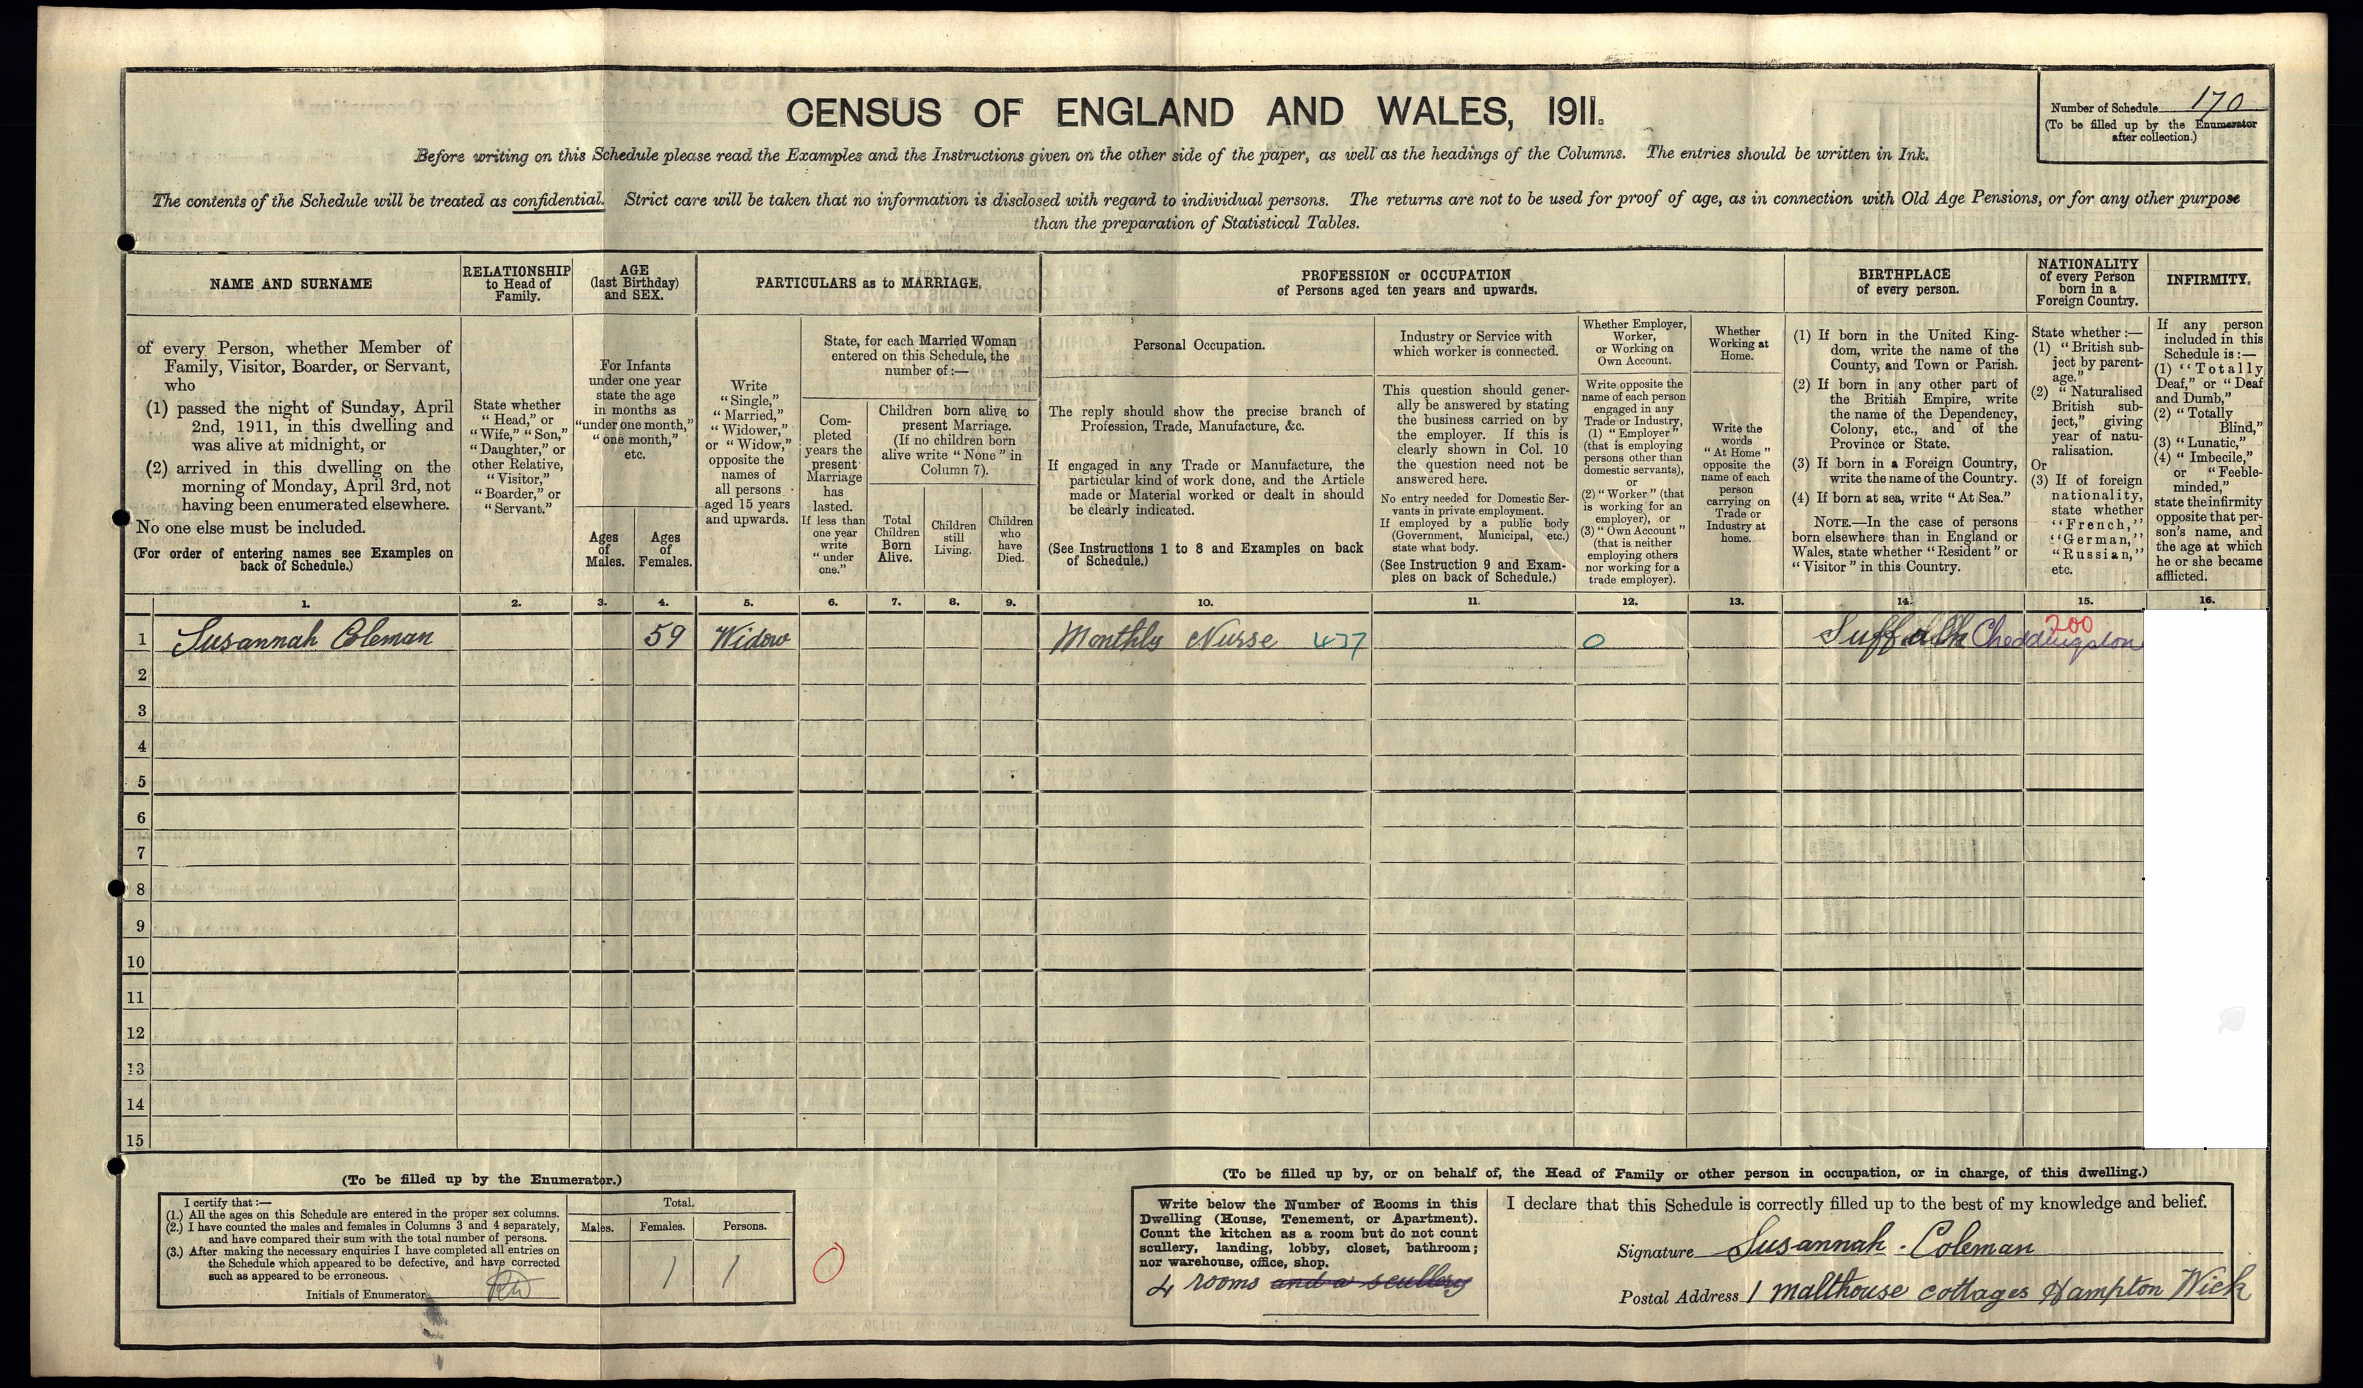 CENSUS OF ENGLAND AND WALES, 1911.
Number of Schedule 170
(To be filled up by the Enumerator
after collection.)
Before writing on this Schedule please read the Examples and the Instructions given on the other side of the paper, as well as the headings of the Columns. The entries should be written in Ink.
The contents of the Schedule will be treated as confidential. Strict care will be taken that no information is disclosed with regard to individual persons. The returns are not to be used for proof of age, as in connection with Old Age Pensions, or for any other purpose
than the preparation of Statistical Tables.
NAME AND SURNAME
of every Person, whether Member of
Family, Visitor, Boarder, or Servant,
who
(1) passed the night of Sunday, April
2nd, 1911, in this dwelling and
was alive at midnight, or
(2) arrived in this dwelling on the
morning of Monday, April 3rd, not
having been enumerated elsewhere.
No one else must be included.
(For order of entering names see Examples on
back of Schedule.)
RELATIONSHIP
to Head of
Family.
State whether
"Head," or
"Wife," "Son,"
"Daughter," or
other Relative,
"Visitor,"
"Boarder," or
"Servant."
AGE
(last Birthday)
and SEX.
For Infants
under one year
state the age
in months as
"under one month,"
"one month,"
etc.
Ages
of
Males.
Ages
of
Females.
PARTICULARS as to MARRIAGE.
Write
"Single,"
"Married,"
"Widower,"
or "Widow,"
opposite the
names of
all persons
aged 15 years
and upwards.
State, for each Married Woman
entered on this Schedule, the
number of:—
Com-
pleted
years the
present
Marriage
has
lasted.
If less than
one year
write
"under
one."
Children born alive to
present Marriage.
(If no children born
alive write "None" in
Column 7).
Total
Children
Born
Alive.
Children
still
Living.
Children
who
have
Died.
PROFESSION or OCCUPATION
of Persons aged ten years and upwards.
Personal Occupation.
The reply should show the precise branch of
Profession, Trade, Manufacture, &c.
If engaged in any Trade or Manufacture, the
particular kind of work done, and the Article
made or Material worked or dealt in should
be clearly indicated.
(See Instructions 1 to 8 and Examples on back
of Schedule.)
Industry or Service with
which worker is connected.
This question should gener-
ally be answered by stating
the business carried on by
the employer. If this is
clearly shown in Col. 10
the question need not be
answered here.
No entry needed for Domestic Ser-
vants in private employment.
If employed by a public body
(Government, Municipal, etc.)
state what body.
(See Instruction 9 and Exam-
ples on back of Schedule.)
Whether Employer,
Worker,
or Working on
Own Account.
Write opposite the
name of each person
engaged in any
Trade or Industry,
(1) "Employer"
(that is employing
persons other than
domestic servants),
or
(2) "Worker" (that
is working for an
employer), or
(3) "Own Account"
(that is neither
employing others
nor working for a
trade employer).
Whether
Working at
Home.
Write the
words
"At Home"
opposite the
name of each
person
carrying on
Trade or
Industry at
home.
BIRTHPLACE
of every person.
(1) If born in the United King-
dom, write the name of the
County, and Town or Parish.
(2) If born in any other part of
the British Empire, write
the name of the Dependency,
Colony, etc., and of the
Province or State.
(3) If born in a Foreign Country,
write the name of the Country.
(4) If born at sea, write "At Sea."
NOTE.—In the case of persons
born elsewhere than in England or
Wales, state whether "Resident" or
"Visitor" in this Country.
NATIONALITY
of every Person
born in a
Foreign Country.
State whether:—
(1) "British sub-
ject by parent-
age."
(2) "Naturalised
British sub-
ject," giving
year of natu-
ralisation.
Or
(3) If of foreign
nationality,
state whether
"French,"
"German,"
"Russian,"
etc.
INFIRMITY.
If any person
included in this
Schedule is:—
(1) "Totally
Deaf," or "Deaf
and Dumb,"
(2) "Totally
Blind,"
(3) "Lunatic,"
(4) "Imbecile,"
or "Feeble-
minded,"
state the infirmity
opposite that per-
son's name, and
the age at which
he or she became
afflicted.
1. 2. 3. 4. 5. 6. 7. 8. 9. 10. 11. 12. 13. 14. 15. 16.
200
1 Susannah Coleman 59 Widow Monthly Nurse 437 0 Suffolk Cheddingston
2
3
4
5
6
7
8
9
10
11
12
13
14
15
(To be filled up by the Enumerator.)
I certify that:—
(1.) All the ages on this Schedule are entered in the proper sex columns.
(2.) I have counted the males and females in Columns 3 and 4 separately,
and have compared their sum with the total number of persons.
(3.) After making the necessary enquiries I have completed all entries on
the Schedule which appeared to be defective, and have corrected
such as appeared to be erroneous.
Initials of Enumerator
Total.
Males. Females. Persons.
1 1
0
(To be filled up by, or on behalf of, the Head of Family or other person in occupation, or in charge, of this dwelling.)
Write below the Number of Rooms in this
Dwelling (House, Tenement, or Apartment).
Count the kitchen as a room but do not count
scullery, landing, lobby, closet, bathroom;
nor warehouse, office, shop.
4 rooms and a scullery
I declare that this Schedule is correctly filled up to the best of my knowledge and belief.
Signature Susannah . Coleman
Postal Address 1 malthouse cottages Hampton Wick